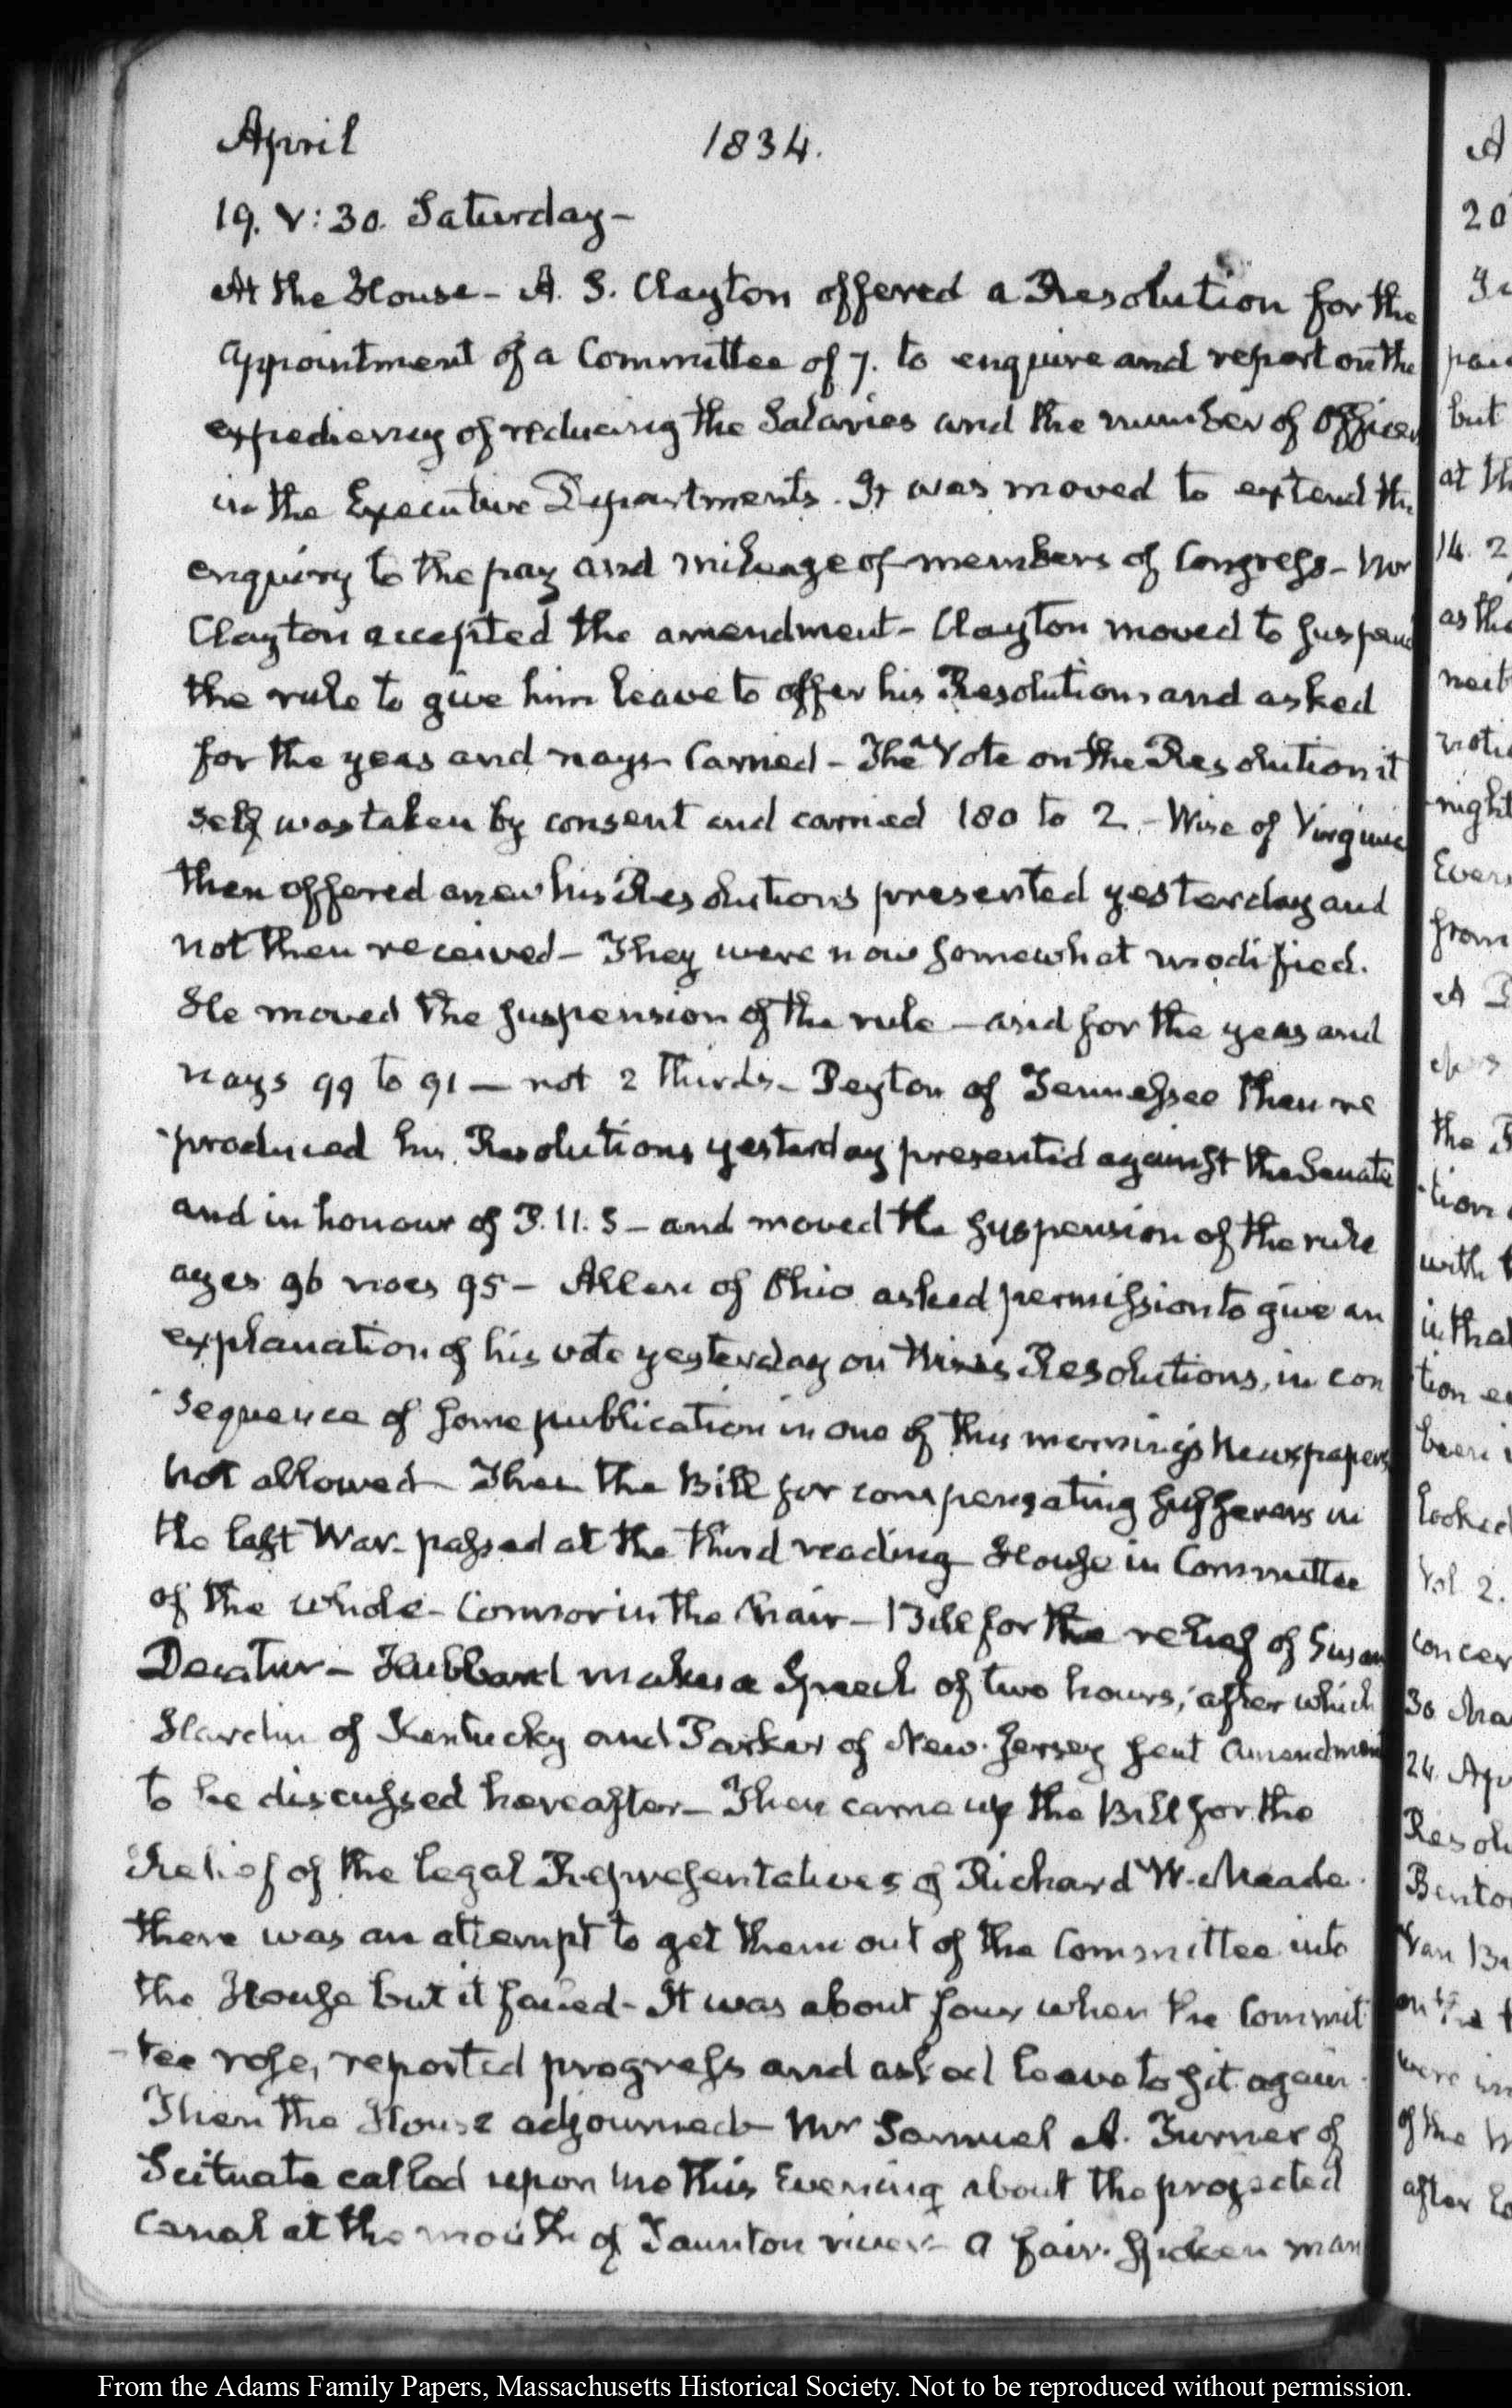 April 1834.
19. V:30. Saturday-
At the House- A. S. Clayton offered a Resolution for the
appointment of a Committee of 7. to enquire and report on the
expediency of reducing the Salaries and the number of Officers
in the Executive Departments. It was moved to extend the
enquiry to the pay and mileage of members of Congress-
Clayton accepted the amendment- Clayton moved to suspend
the rule to give him leave to offer his Resolution and asked
for the yeas and nays- Carried- The Vote on the Resolution it
self was taken by consent and carried 180 to 2.- Wise of Virginia
then offered anew his Resolutions presented yesterday and
not then received- They were now somewhat modified.
He moved the suspension of the rule- and for the yeas and
nays 99 to 91- not 2 thirds- Peyton of Tennessee then re
-produced his Resolutions yesterday presented against the Senate
and in honour of P.U.S- and moved the suspension of the rule
ayes 96 noes 95- Allen of Ohio asked permission to give an
explanation of his vote yesterday on Wise's Resolutions, in con
-sequence of some publication in one of this morning's Newspapers
not allowed- Then the Bill for compensating sufferers in
the last War- passed at the third reading- House in Committee
of the whole- Connor in the Chair- Bill for the relief of Susan
Decatur- Hubbard makes a Speech of two hours; after which
Hardin of Kentucky and Parker of New-Jersey sent amendments
to be discussed hereafter- Then came up the Bill for the
Relief of the legal Representatives of Richard W. Meade.
there was an attempt to get them out of the Committee into
the House but it failed- It was about four when the Commit
-tee rose, reported progress and asked leave to sit again.
Then the House adjourned- Mr Samuel A. Turner of
Scituate called upon me this Evening about the projected
Canal at the mouth of Taunton river- a fair-spoken man
A
20
but
at th
14. 2
as the
night
from
the
with
looked
Vol 2.
concer
24. Apr
Resol
Bento
Van B
From the Adams Family Papers, Massachusetts Historical Society. Not to be reproduced without permission.